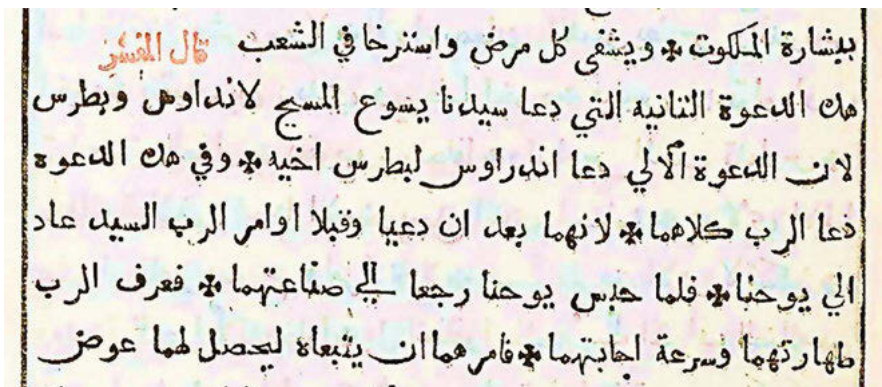 ببشارة الملكوت ✤ ويشفى كل مرض واسترخا في الشعب قال المفسر
هذه الدعوة الثانيه التي دعا سيدنا يسوع المسيح لاندراوس وبطرس
لان الدعوة الآلي دعا اندراوس لبطرس اخيه ✤ وفي هذه الدعوه
دعا الرب كلاهما ✤ لانهما بعد ان دعيا وقبلا اوامر الرب السيد عاد
الي يوحنا ✤ فلما حبس يوحنا رجعا الي صناعتهما ✤ فعرف الرب
طهارتهما وسرعة اجابتهما ✤ فامرهما ان يتبعاه ليحصل لهما عوض